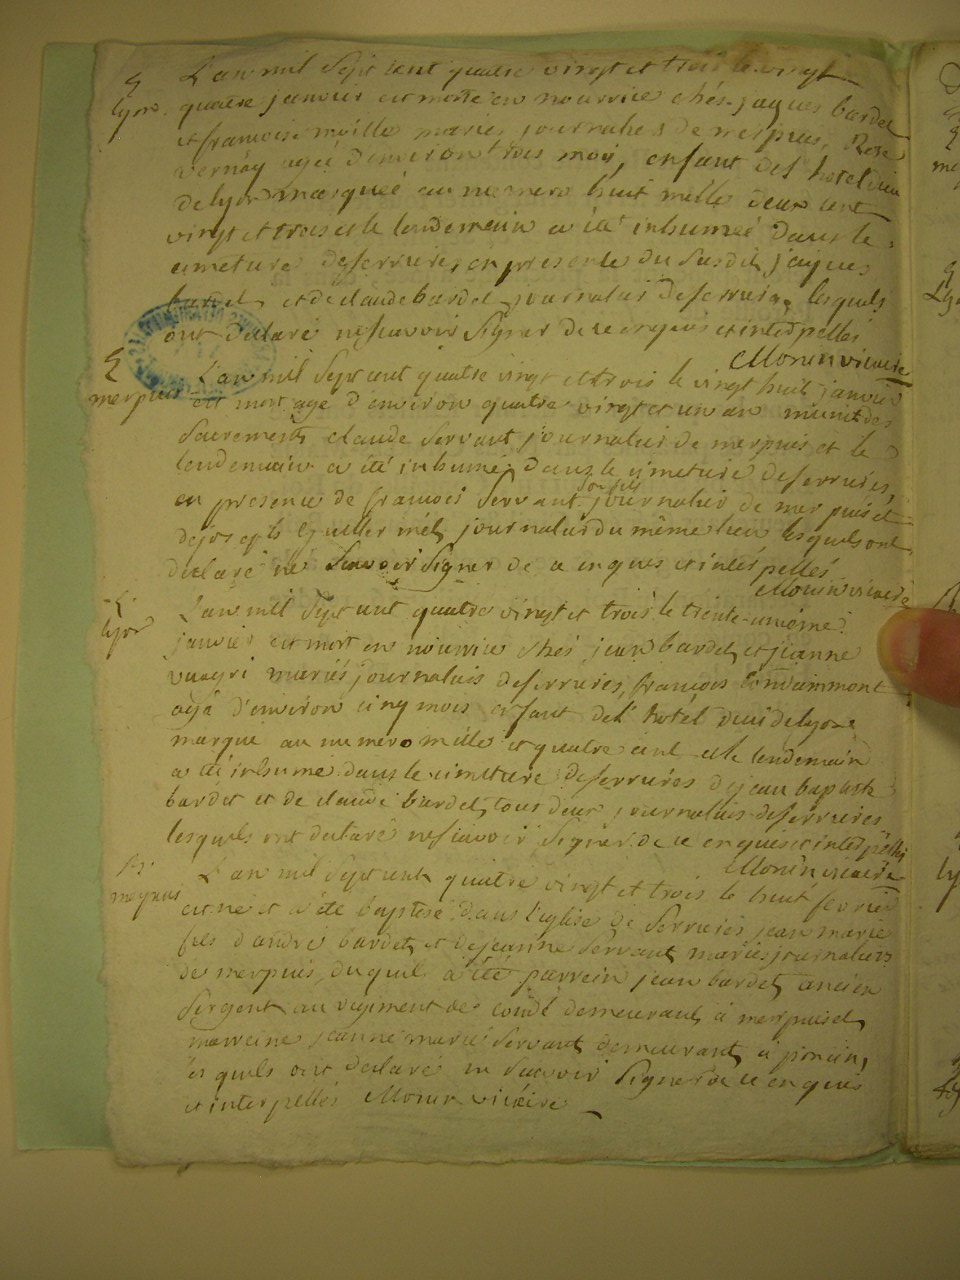 S
Lyon
L'an mil sept cent quatre vingt et trois le vingt
quatre janvier est morte en nourrice chés jaques bardet
et françoise moille mariés journaliers de merpuis, Rose
vernay agée d'environ trois mois, enfant de l'hotel dieu
de lyon marquée au numero huit mille deux cent
vingt et trois et le lendemain a été inhumée dans le
cimetiere deserrieres en presence du susdit jaques
bardet et de claude bardet journalier deserrieres lesquels
ont declaré nescavoir signer de ce enquis et interpellés
Morin vicaire
S
merpuis
L'an mil sept cent quatre vingt et trois le vingt huit janvier
est mort agé d'environ quatre vingt et un an munit des
Sacrements claude servant journalier de merpuis et le
lendemain a été inhumé dans le cimetiere deserrieres,
en presence de francois Servant son fils journalier de merpuis et
de joseph journalier du même lieu lesquels ont
declaré ne scavoir signer de ce enquis et interpellés
Morin vicaire
S
lyon
L'an mil sept cent quatre vingt et trois le trente-unieme
janvier est mort en nourrice chés jean bardet et jeanne
mariés journaliers deserrieres, françois
agé d'environ cinq mois enfant de l'hotel dieu de lyon
marqué au numero mille et quatre cent et le lendemain
a été inhumé dans le cimetiere deserrieres djean baptiste
bardet et de claude bardet, tous deux journaliers deserrieres
lesquels ont declaré nescavoir signer de ce enquis et interpellés
Morin vicaire
B.
L'an mil sept cent quatre vingt et trois le huit fevrier
est né et a été baptisé dans l'eglise de Serrieres jean marie
fils d'andré bardet et dejeanne servant mariés journaliers
de merpuis, duquel a été parrein jean bardet, ancien
Sergent au regiment de condé demeurant à merpuis et
marreine jeanne marie Servant demeurant a poncin,
lesquels ont declaré ne scavoir signer de ce enquis
et interpellés Morin vicaire